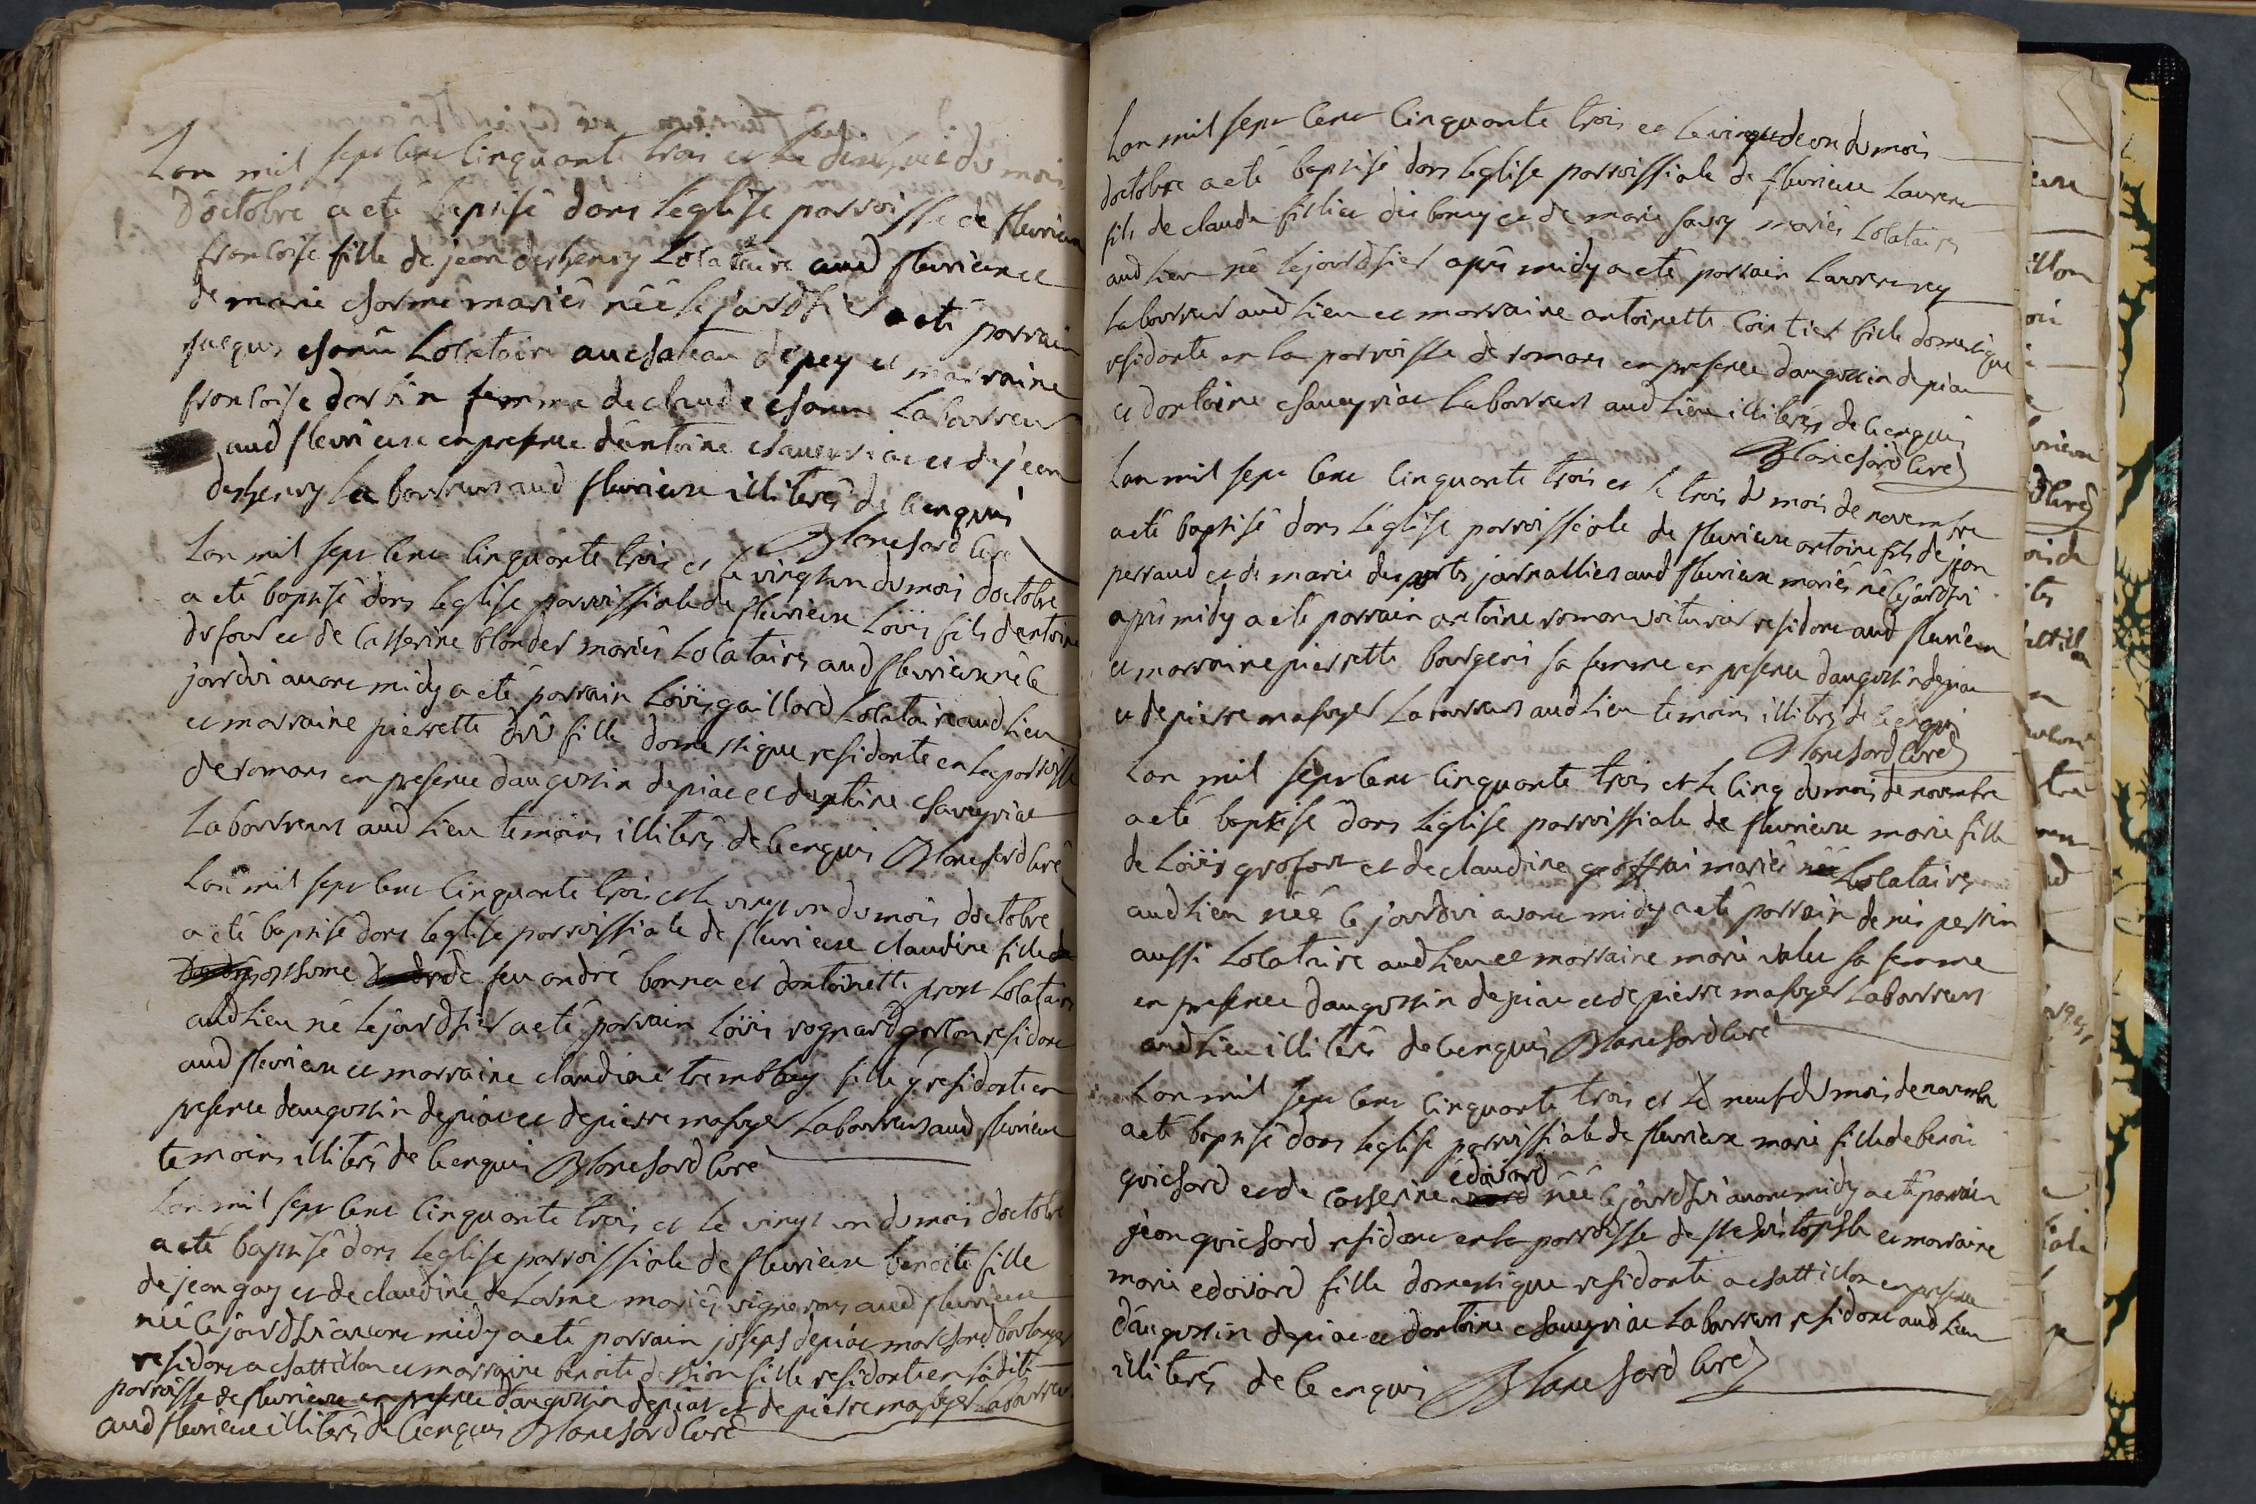 Lan mil sept cent cinquante trois et le dixhuit du mois
doctobre a eté baptisé dans leglise parroisse de fleurieux
francoise fille de jean desheny Locataire aud fleurieux et
de marie charme mariés née le jourdhier a eté parrain
jacques charm Locataire au chateau depey et marraine
francoise dartin femme de claude charm Laboureur
aud fleurieux en presence dantoine chaueyriac et dejean
desheny Laboureurs aud fleurieux illiterés de ce enquis
Blanchard curé
Lan mil sept cent cinquante trois et le vingt un du mois doctobre
a eté baptisé dans leglise parroissiale de fleurieux Loüis fils dantoine
dufour et de catherine blondel mariés Locataires aud fleurieux né le
jourdui auant midy a eté parrain Loüis gaillard Locataire aud lieu
et marraine pierrette fille domestique residante en la parroisse
de romans en presence daugustin depiac et dantoine chaueyriac
Laboureurs aud lieu temoins illiterés de ce enquis Blanchard curé
Lan mil sept cent cinquante trois et le vingt un du mois doctobre
a eté baptisé dans leglise parroissiale de fleurieux claudine fille de
posthume de feu andré bonna et dantoinette prost Locataires
aud lieu né le jourdhier a eté parrain Loüis rognard garcon residant
aud fleurieux et marraine claudine tremblay fille y residante en
presence daugustin depiac et depierre mafuyer Laboureurs aud fleurieux
temoins illiterés de ce enquis Blanchard curé
Lan mil sept cent cinquante trois et le vingt un du mois doctobre
a eté baptisé dans leglise parroissiale de fleurieux benoite fille
de jean gay et de claudine delorme mariés vignerons aud fleurieux
née le jourdhui auant midy a eté parrain joseph depiac marchand boulanger
residant a chattillon et marraine benoite fille residante en ladite
parroisse de fleurieux en presence daugustin depiac et de pierre mafuyer Laboureurs
aud fleurieux illiterés de ce enquis Blanchard curé
Lan mil sept cent cinquante trois et le vingt deux du mois
doctobre a eté baptisé dans leglise parroissiale de fleurieux Laurent
fils de claude fillia dit boucy et de marie savy mariés Locataires
aud lieu né lejourdhier aprés midy a eté parrain Laurent rey
Laboureur aud lieu et marraine antoinette Cointier fille domestique
residante en la parroisse de romans en presence daugustin depiac
et dantoine chaueyriac Laboureurs aud lieu illiterés de ce enquis
Blanchard curé
Lan mil sept cent cinquante trois et le trois du mois de novembre
a eté baptisé dans leglise parroissiale de fleurieux antoine fils de jean
perraud et de marie desports journallier aud fleurieux mariés né le jourdhui
aprés midy a eté parrain antoine romans voiturier residant aud fleurieux
et marraine pierrette bourgeois sa femme en presence daugustin depiac
et depierre mafuyer Laboureurs aud lieu temoins illiterés de ce enquis
Blanchard curé
Lan mil sept cent cinquante trois et le cinq du mois de novembre
a eté baptisé dans leglise parroissiale de fleurieux marie fille
de Loüis grofort et de claudine geoffrai mariés Locataires
aud lieu née le jourdui avant midy a eté parrain denis perrin
aussi Locataire aud lieu et marraine marie valet sa femme
en presence daugustin depiac et de pierre mafuyer Laboureurs
aud lieu illiterés de ce enquis Blanchard curé
Lan mil sept cent cinquante trois et le neuf du mois de novembre
a eté baptisé dans leglise parroissiale de fleurieux marie fille de benoit
edoüard
guichard et de catherine née le jourdhui avant midy a eté parrain
jean guichard residant en la parroisse de st christophle et marraine
marie edoüard fille domestique residante a chattillon en presence
daugustin depiac et dantoine chaueyriac Laboureurs residant aud lieu
illiterés de ce enquis Blanchard curé